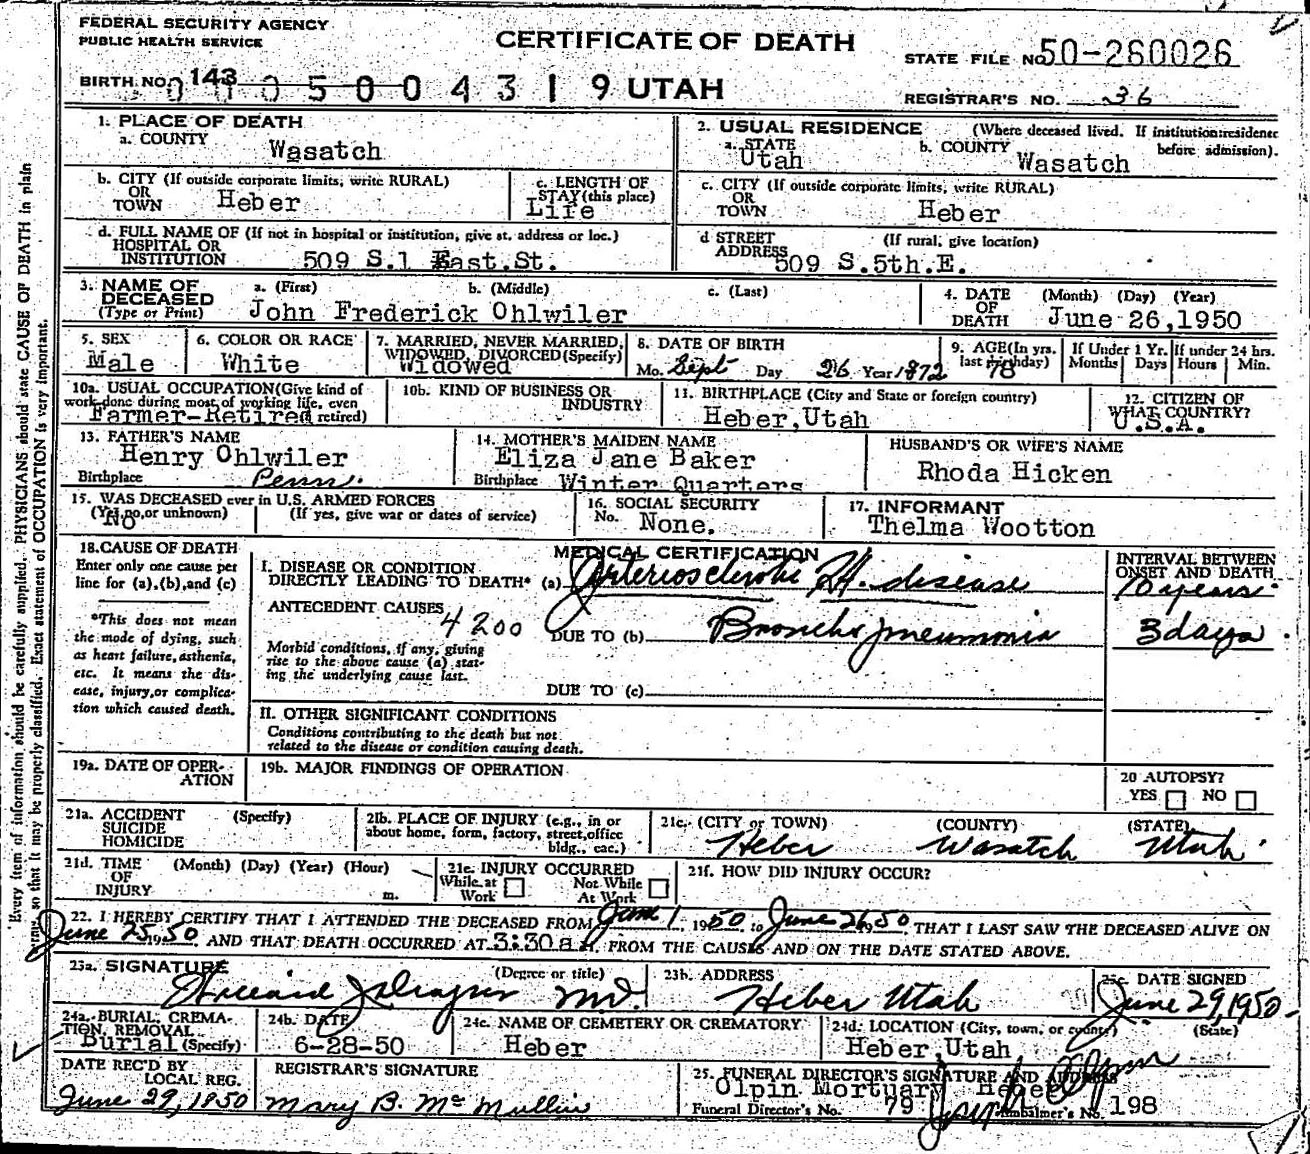 FEDERAL SECURITY AGENCY
PUBLIC HEALTH SERVICE
CERTIFICATE OF DEATH
STATE FILE NO. 50-260026
BIRTH NO. 143
0105004319 UTAH
REGISTRAR'S NO. 36
1. PLACE OF DEATH
a. COUNTY
Wasatch
2. USUAL RESIDENCE (Where deceased lived. If institution: residence before admission).
a. STATE
Utah
b. COUNTY
Wasatch
b. CITY (If outside corporate limits, write RURAL)
OR
TOWN
Heber
c. LENGTH OF
STAY (this place)
Life
c. CITY (If outside corporate limits, write RURAL)
OR
TOWN
Heber
d. FULL NAME OF (If not in hospital or institution, give st. address or loc.)
HOSPITAL OR
INSTITUTION
509 S.1 East.St.
d STREET
ADDRESS
(If rural, give location)
509 S.5th.E.
3. NAME OF
DECEASED
(Type or Print)
a. (First) b. (Middle) c. (Last)
John Frederick Ohlwiler
4. DATE
OF
DEATH
(Month) (Day) (Year)
June 26,1950
5. SEX
Male
6. COLOR OR RACE
White
7. MARRIED, NEVER MARRIED,
WIDOWED, DIVORCED (Specify)
Widowed
8. DATE OF BIRTH
Mo. Sept Day 26 Year 1872
9. AGE (In yrs.
last birthday)
78
If Under 1 Yr.
Months Days
If under 24 hrs.
Hours Min.
10a. USUAL OCCUPATION (Give kind of
work done during most of working life, even
if retired)
Farmer-Retired
10b. KIND OF BUSINESS OR
INDUSTRY
11. BIRTHPLACE (City and State or foreign country)
Heber,Utah
12. CITIZEN OF
WHAT COUNTRY?
U.S.A.
13. FATHER'S NAME
Henry Ohlwiler
Birthplace Penn.
14. MOTHER'S MAIDEN NAME
Eliza Jane Baker
Birthplace Winter Quarters
HUSBAND'S OR WIFE'S NAME
Rhoda Hicken
15. WAS DECEASED ever in U.S. ARMED FORCES
(Yes, no, or unknown) (If yes, give war or dates of service)
No
16. SOCIAL SECURITY
No. None.
17. INFORMANT
Thelma Wootton
18. CAUSE OF DEATH
Enter only one cause per
line for (a), (b), and (c)
*This does not mean
the mode of dying, such
as heart failure, asthenia,
etc. It means the dis-
ease, injury, or complica-
tion which caused death.
MEDICAL CERTIFICATION
I. DISEASE OR CONDITION
DIRECTLY LEADING TO DEATH* (a) Arteriosclerotic Ht. disease
INTERVAL BETWEEN
ONSET AND DEATH
10 years
ANTECEDENT CAUSES
4200
DUE TO (b) Broncho pneumonia
3 days
Morbid conditions, if any, giving
rise to the above cause (a) stat-
ing the underlying cause last.
DUE TO (c)
II. OTHER SIGNIFICANT CONDITIONS
Conditions contributing to the death but not
related to the disease or condition causing death.
19a. DATE OF OPER-
ATION
19b. MAJOR FINDINGS OF OPERATION
20 AUTOPSY?
YES NO
21a. ACCIDENT
SUICIDE
HOMICIDE
(Specify)
21b. PLACE OF INJURY (e.g., in or
about home, form, factory, street, office
bldg., eac.)
21c. (CITY or TOWN) (COUNTY) (STATE)
Heber Wasatch Utah
21d. TIME
OF
INJURY
(Month) (Day) (Year) (Hour)
m.
21e. INJURY OCCURRED
While at
Work
Not While
At Work
21f. HOW DID INJURY OCCUR?
22. I HEREBY CERTIFY THAT I ATTENDED THE DECEASED FROM June 1, 1950 to June 26, 1950 THAT I LAST SAW THE DECEASED ALIVE ON
June 25, 1950 AND THAT DEATH OCCURRED AT 3:30 a M. FROM THE CAUSES AND ON THE DATE STATED ABOVE.
23a. SIGNATURE (Degree or title)
MD.
23b. ADDRESS
Heber Utah
23c. DATE SIGNED
June 29, 1950
24a. BURIAL, CREMA-
TION, REMOVAL
Burial (Specify)
24b. DATE
6-28-50
24c. NAME OF CEMETERY OR CREMATORY
Heber
24d. LOCATION (City, town, or county) (State)
Heber,Utah
DATE REC'D BY
LOCAL REG.
June 29, 1950
REGISTRAR'S SIGNATURE
Mary B. McMullin
25. FUNERAL DIRECTOR'S SIGNATURE AND ADDRESS
Olpin Mortuary Heber
Funeral Director's No. 79 Embalmer's No. 198
Every item of information should be carefully supplied. PHYSICIANS should state CAUSE OF DEATH in plain
terms, so that it may be properly classified. Exact statement of OCCUPATION is very important.